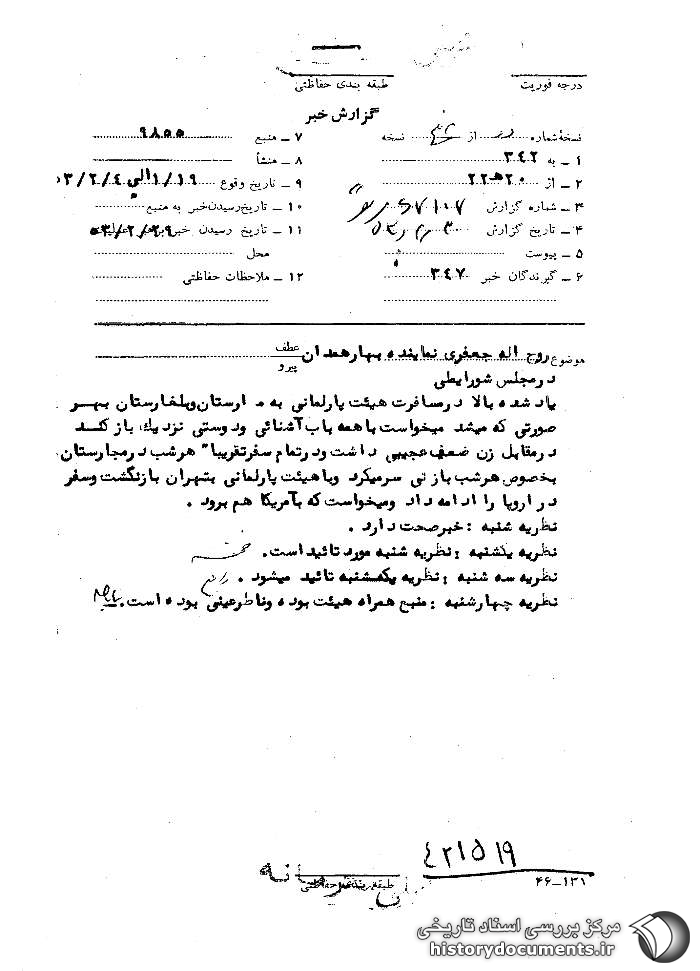 درجه فوریت
طبقه بندی حفاظتی
گزارش خبر
نسخهٔ شماره از نسخه
۱ ـ به ۳۴۲
۲ ـ از ۲۰ هـ ۲۲
۳ ـ شماره گزارش
۴ ـ تاریخ گزارش
۵ ـ پیوست
۶ ـ گیرندگان خبر ۳۴۷
۷ ـ منبع ۹۸۵۵
۸ ـ منشأ
۹ ـ تاریخ وقوع ۱/۱۹ الی ۵۳/۲/۴
۱۰ ـ تاریخ رسیدن خبر به منبع
۱۱ ـ تاریخ رسیدن خبر ۵۳/۲/۲۹
محل
۱۲ ـ ملاحظات حفاظتی
موضوع روح اله جعفری نماینده بهار همدان
عطف
پیرو
در مجلس شورایملی
یاد شده بالا در مسافرت هیئت پارلمانی به م ارستان وبلغارستان بهر
صورتی که میشد میخواست با همه باب آشنائی ودوستی نزدیك باز کند
در مقابل زن ضعف عجیبی داشت ودر تمام سفر تقریبا" هرشب در مجارستان
بخصوص هرشب باز نی سر میکرد وبا هیئت پارلمانی بتهران بازنگشت وسفر
در اروپا را ادامه داد ومیخواست که بآمریکا هم برود .
نظریه شنبه : خبر صحت دارد .
نظریه یکشنبه : نظریه شنبه مورد تائید است .
نظریه سه شنبه : نظریه یکشنبه تائید میشود .
نظریه چهارشنبه : منبع همراه هیئت بوده وناظر عینی بوده است .
۴۲۱۵۱۹
طبقه بندی حفاظتی
۴۶-۱۳۱
مرکز بررسی اسناد تاریخی
historydocuments.ir